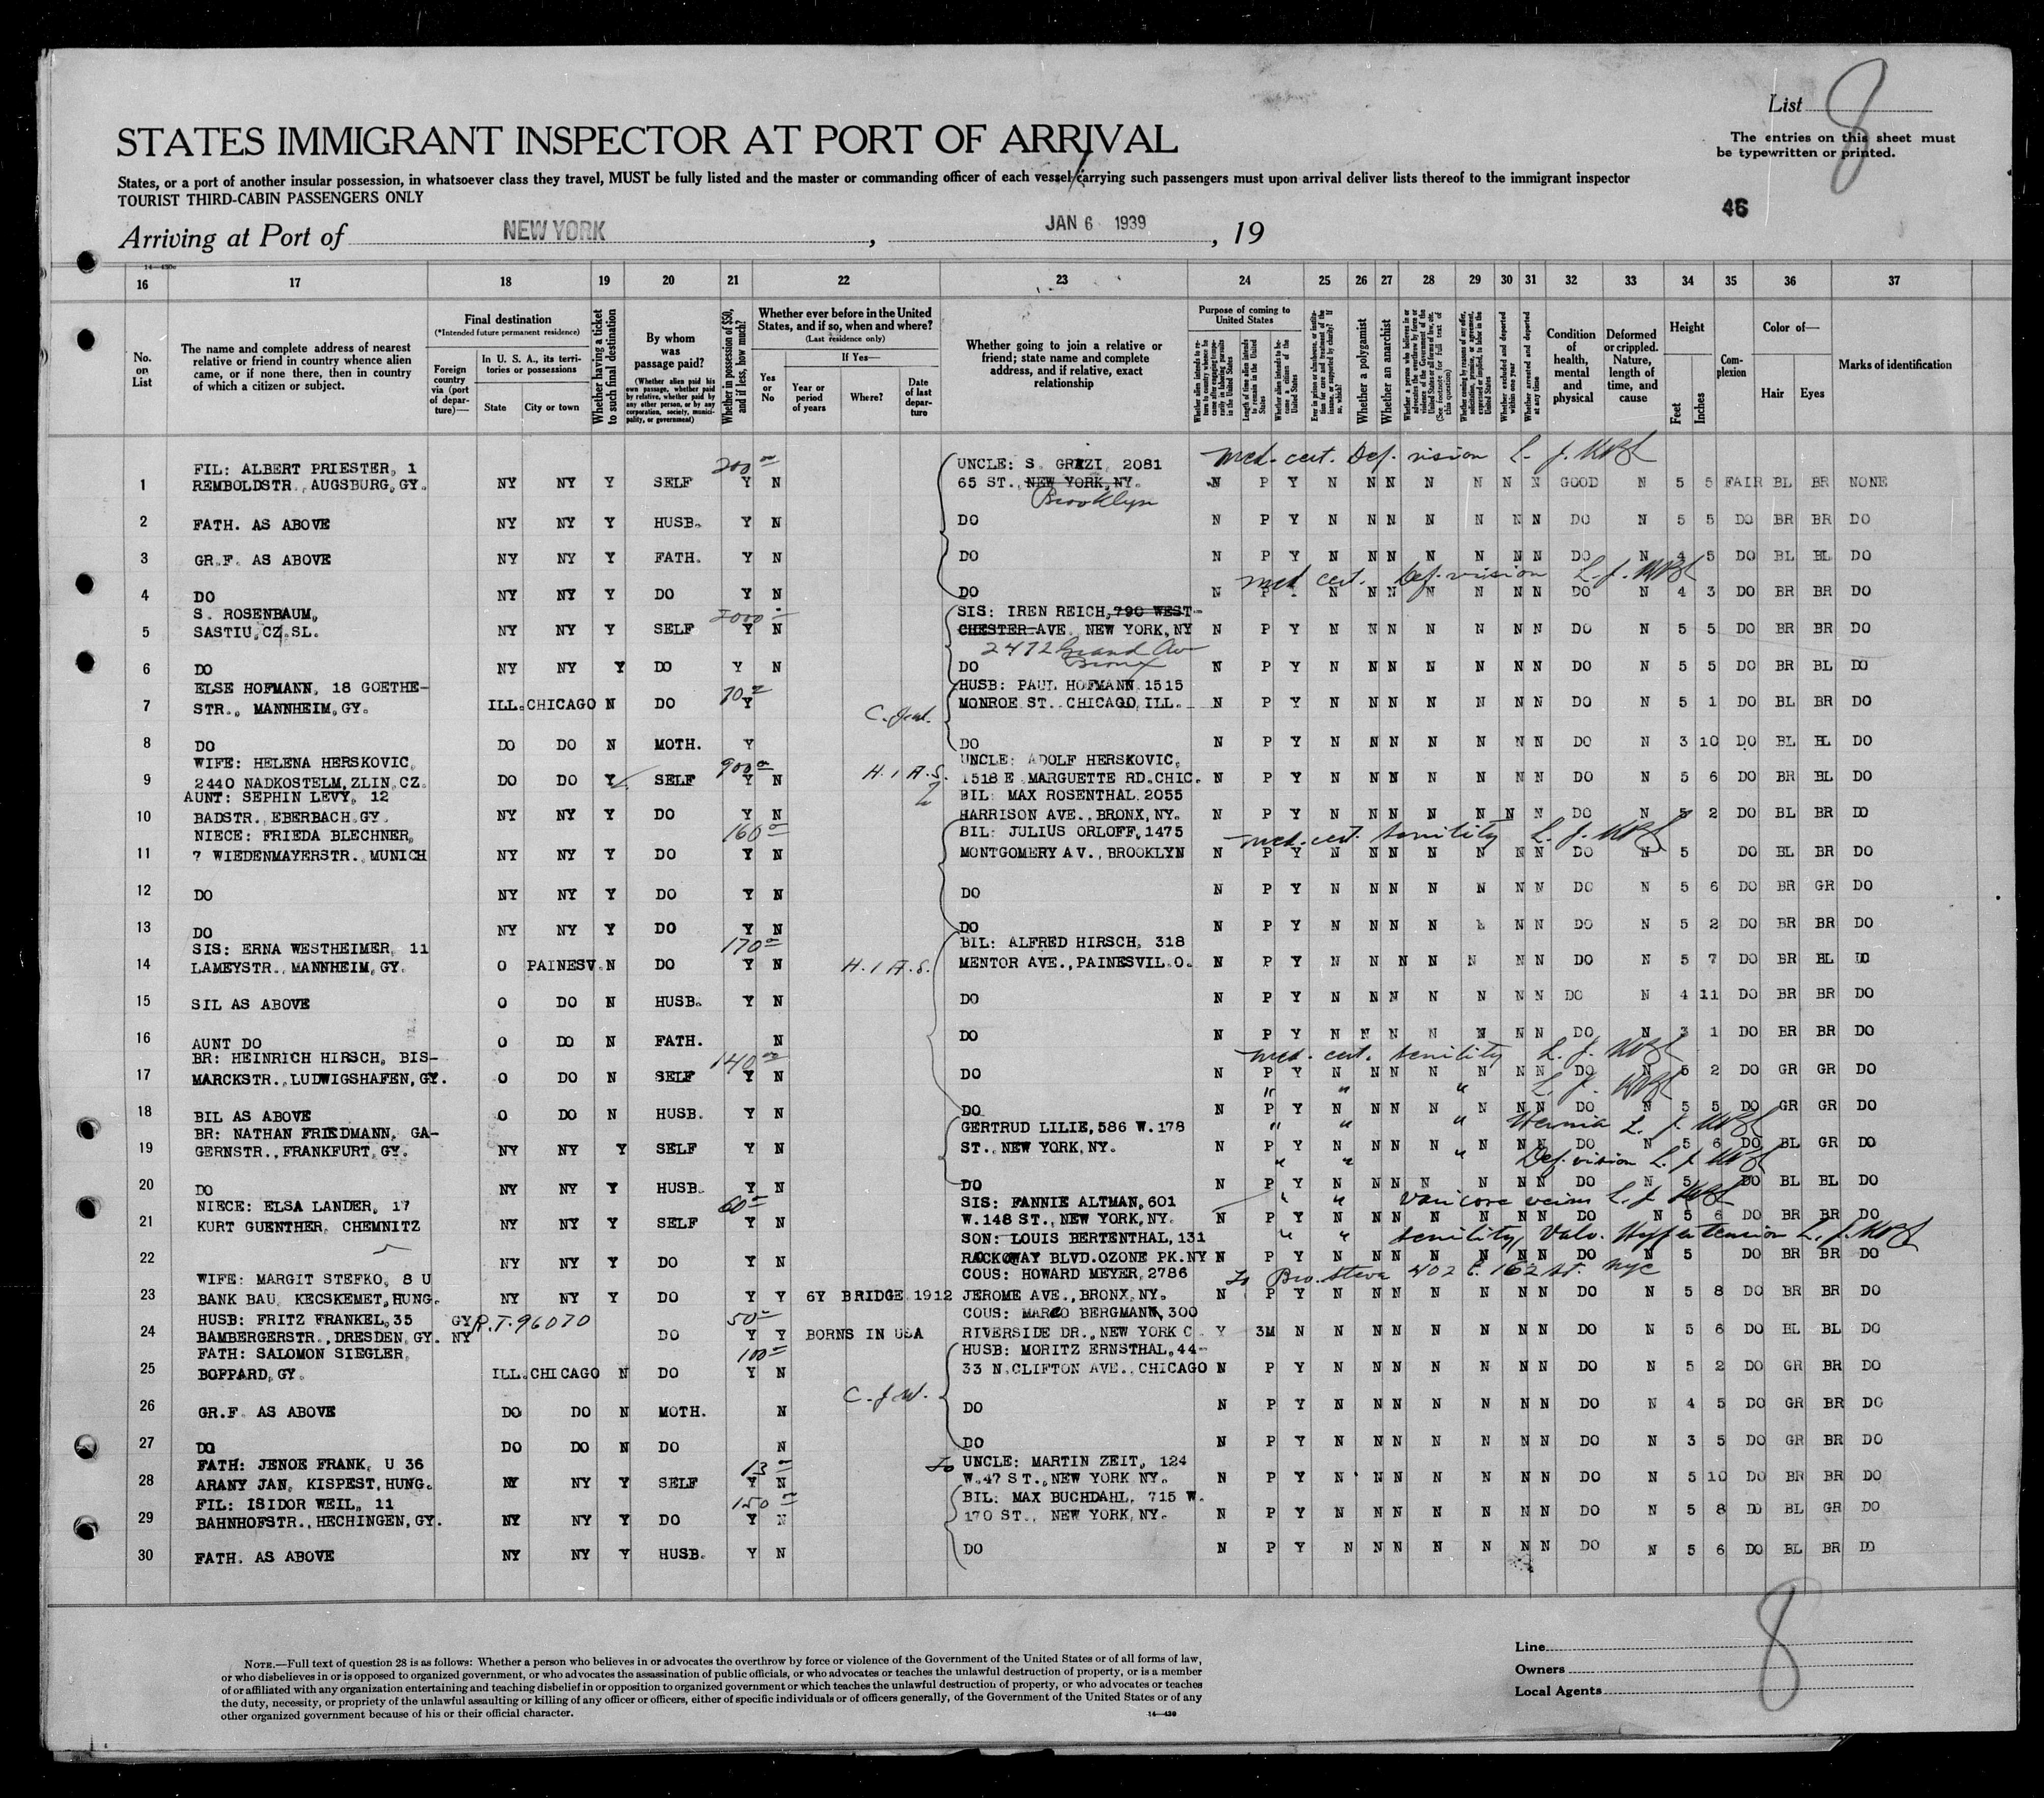 List 8
STATES IMMIGRANT INSPECTOR AT PORT OF ARRIVAL
The entries on this sheet must
be typewritten or printed.
States, or a port of another insular possession, in whatsoever class they travel, MUST be fully listed and the master or commanding officer of each vessel carrying such passengers must upon arrival deliver lists thereof to the immigrant inspector
TOURIST THIRD-CABIN PASSENGERS ONLY
46
Arriving at Port of NEW YORK, JAN 6 1939, 19
16 17 18 19 20 21 22 23 24 25 26 27 28 29 30 31 32 33 34 35 36 37
No. on List
The name and complete address of nearest relative or friend in country whence alien came, or if none there, then in country of which a citizen or subject.
Final destination
(*Intended future permanent residence)
Foreign country via (port of departure)—
In U. S. A., its territories or possessions
State City or town
Whether having a ticket to such final destination
By whom was passage paid?
(Whether alien paid his own passage, whether paid by relative, whether paid by any other person, or by any corporation, society, municipality, or government)
Whether in possession of $50, and if less, how much?
Whether ever before in the United States, and if so, when and where?
(Last residence only)
If Yes—
Yes or No
Year or period of years
Where?
Date of last departure
Whether going to join a relative or friend; state name and complete address, and if relative, exact relationship
Purpose of coming to United States
Whether a polygamist
Whether an anarchist
Condition of health, mental and physical
Deformed or crippled. Nature, length of time, and cause
Height
Feet Inches
Complexion
Color of—
Hair Eyes
Marks of identification
200 med. cert. Def. vision
FIL: ALBERT PRIESTER, 1 UNCLE: S. GRAZI, 2081
1 REMBOLDSTR., AUGSBURG, GY. NY NY Y SELF Y N 65 ST., NEW YORK, NY. N P Y N N N N N N N GOOD N 5 5 FAIR BL BR NONE
Brooklyn
2 FATH. AS ABOVE NY NY Y HUSB. Y N DO N P Y N N N N N N N DO N 5 5 DO BR BR DO
3 GR.F. AS ABOVE NY NY Y FATH. Y N DO N P Y N N N N N N N DO N 4 5 DO BL BL DO
med cert. Def. vision
4 DO NY NY Y DO Y N DO N P Y N N N N N N N DO N 4 3 DO BR BR DO
S. ROSENBAUM, SIS: IREN REICH, 790 WEST-
5 SASTIU, CZ.SL. NY NY Y SELF Y N CHESTER AVE. NEW YORK, NY N P Y N N N N N N N DO N 5 5 DO BR BR DO
2472 Grand Av Bronx
6 DO NY NY Y DO Y N DO N P Y N N N N N N N DO N 5 5 DO BR BL DO
ELSE HOFMANN, 18 GOETHE- 70 HUSB: PAUL HOFMANN 1515
7 STR., MANNHEIM, GY. ILL. CHICAGO N DO Y MONROE ST. CHICAGO, ILL. N P Y N N N N N N N DO N 5 1 DO BL BR DO
8 DO DO DO N MOTH. Y DO N P Y N N N N N N N DO N 3 10 DO BL BL DO
WIFE: HELENA HERSKOVIC, 900 UNCLE: ADOLF HERSKOVIC,
9 2440 NADKOSTELM, ZLIN, CZ. DO DO Y SELF Y N H.I.A.S. 1518 E MARGUETTE RD. CHIC. N P Y N N N N N N N DO N 5 6 DO BR BL DO
AUNT: SEPHIN LEVY, 12 BIL: MAX ROSENTHAL 2055
10 BADSTR., EBERBACH GY. NY NY Y DO Y N HARRISON AVE., BRONX, NY. N P Y N N N N N N N DO N 2 DO BL BR DO
NIECE: FRIEDA BLECHNER, 160 BIL: JULIUS ORLOFF, 1475 med. cert. senility
11 7 WIEDENMAYERSTR., MUNICH NY NY Y DO Y N MONTGOMERY AV., BROOKLYN N P Y N N N N N N N DO N 5 DO BL BR DO
12 DO NY NY Y DO Y N DO N P Y N N N N N N N DO N 5 6 DO BR GR DO
13 DO NY NY Y DO Y N DO N P Y N N N N N N DO N 5 2 DO BR BR DO
SIS: ERNA WESTHEIMER, 11 170 BIL: ALFRED HIRSCH, 318
14 LAMEYSTR., MANNHEIM, GY. O PAINESV. N DO Y N H.I.A.S. MENTOR AVE., PAINESVIL. O. N P Y N N N N N N N DO N 5 7 DO BR BL DO
15 SIL AS ABOVE O DO N HUSB. Y N DO N P Y N N N N N N N DO N 4 11 DO BR BR DO
16 AUNT DO O DO N FATH. N DO N P Y N N N N N N N DO N 3 1 DO BR BR DO
BR: HEINRICH HIRSCH, BIS- 140 med. cert. senility
17 MARCKSTR., LUDWIGSHAFEN, GY. O DO N SELF Y N DO N P Y N N N N N N N DO N 5 2 DO GR GR DO
" " "
18 BIL AS ABOVE O DO N HUSB. Y N DO N P Y N N N N N N N DO N 5 5 DO GR GR DO
BR: NATHAN FRIEDMANN, GA- GERTRUD LILIE, 586 W. 178 " " " Hernia
19 GERNSTR., FRANKFURT, GY. NY NY Y SELF Y N ST., NEW YORK, NY. N P Y N N N N N N N DO N 5 6 DO BL GR DO
" " " Def. vision
20 DO NY NY Y HUSB. Y N DO N P Y N N N N N N N DO N 5 DO BL BL DO
NIECE: ELSA LANDER, 17 60 SIS: FANNIE ALTMAN, 601 " " varicose veins
21 KURT GUENTHER, CHEMNITZ NY NY Y SELF Y N W. 148 ST., NEW YORK, NY. N P Y N N N N N N N DO N 5 6 DO BR BR DO
SON: LOUIS BERTENTHAL, 131 " " senility, Valv. Hypertension
22 NY NY Y DO Y N RACKOWAY BLVD. OZONE PK. NY N P Y N N N N N N N DO N 5 DO BR BR DO
WIFE: MARGIT STEFKO, 8 U COUS: HOWARD MEYER, 2786 To Bro. Steve 402 E. 162 St. NYC
23 BANK BAU, KECSKEMET, HUNG. NY NY Y DO Y Y 6Y BRIDGE. 1912 JEROME AVE., BRONX, NY. N P Y N N N N N N N DO N 5 8 DO BR BR DO
HUSB: FRITZ FRANKEL, 35 GY R.T. 96070 50 COUS: MARCO BERGMANN, 300
24 BAMBERGERSTR., DRESDEN, GY. NY DO Y Y BORNS IN USA RIVERSIDE DR., NEW YORK C. Y 3M N N N N N N N N DO N 5 6 DO BL BL DO
FATH: SALOMON SIEGLER, 100 HUSB: MORITZ ERNSTHAL, 44-
25 BOPPARD, GY. ILL. CHICAGO N DO Y N 33 N. CLIFTON AVE., CHICAGO N P Y N N N N N N N DO N 5 2 DO GR BR DO
26 GR.F. AS ABOVE DO DO N MOTH. N C.J.W. DO N P Y N N N N N N N DO N 4 5 DO GR BR DO
27 DO DO DO N DO N DO N P Y N N N N N N N DO N 3 5 DO GR BR DO
FATH: JENOE FRANK, U 36 13 To UNCLE: MARTIN ZEIT, 124
28 ARANY JAN, KISPEST, HUNG. NY NY Y SELF Y N W. 47 ST., NEW YORK NY. N P Y N N N N N N N DO N 5 10 DO BR BR DO
FIL: ISIDOR WEIL, 11 150 BIL: MAX BUCHDAHL, 715 W.
29 BAHNHOFSTR., HECHINGEN, GY. NY NY Y DO Y N 170 ST., NEW YORK, NY. N P Y N N N N N N N DO N 5 8 DO BL GR DO
30 FATH. AS ABOVE NY NY Y HUSB. Y N DO N P Y N N N N N N N DO N 5 6 DO BL BR DO
NOTE.—Full text of question 28 is as follows: Whether a person who believes in or advocates the overthrow by force or violence of the Government of the United States or of all forms of law,
or who disbelieves in or is opposed to organized government, or who advocates the assassination of public officials, or who advocates or teaches the unlawful destruction of property, or is a member
of or affiliated with any organization entertaining and teaching disbelief in or opposition to organized government or which teaches the unlawful destruction of property, or who advocates or teaches
the duty, necessity, or propriety of the unlawful assaulting or killing of any officer or officers, either of specific individuals or of officers generally, of the Government of the United States or of any
other organized government because of his or their official character.
14—430
Line
Owners
Local Agents
8